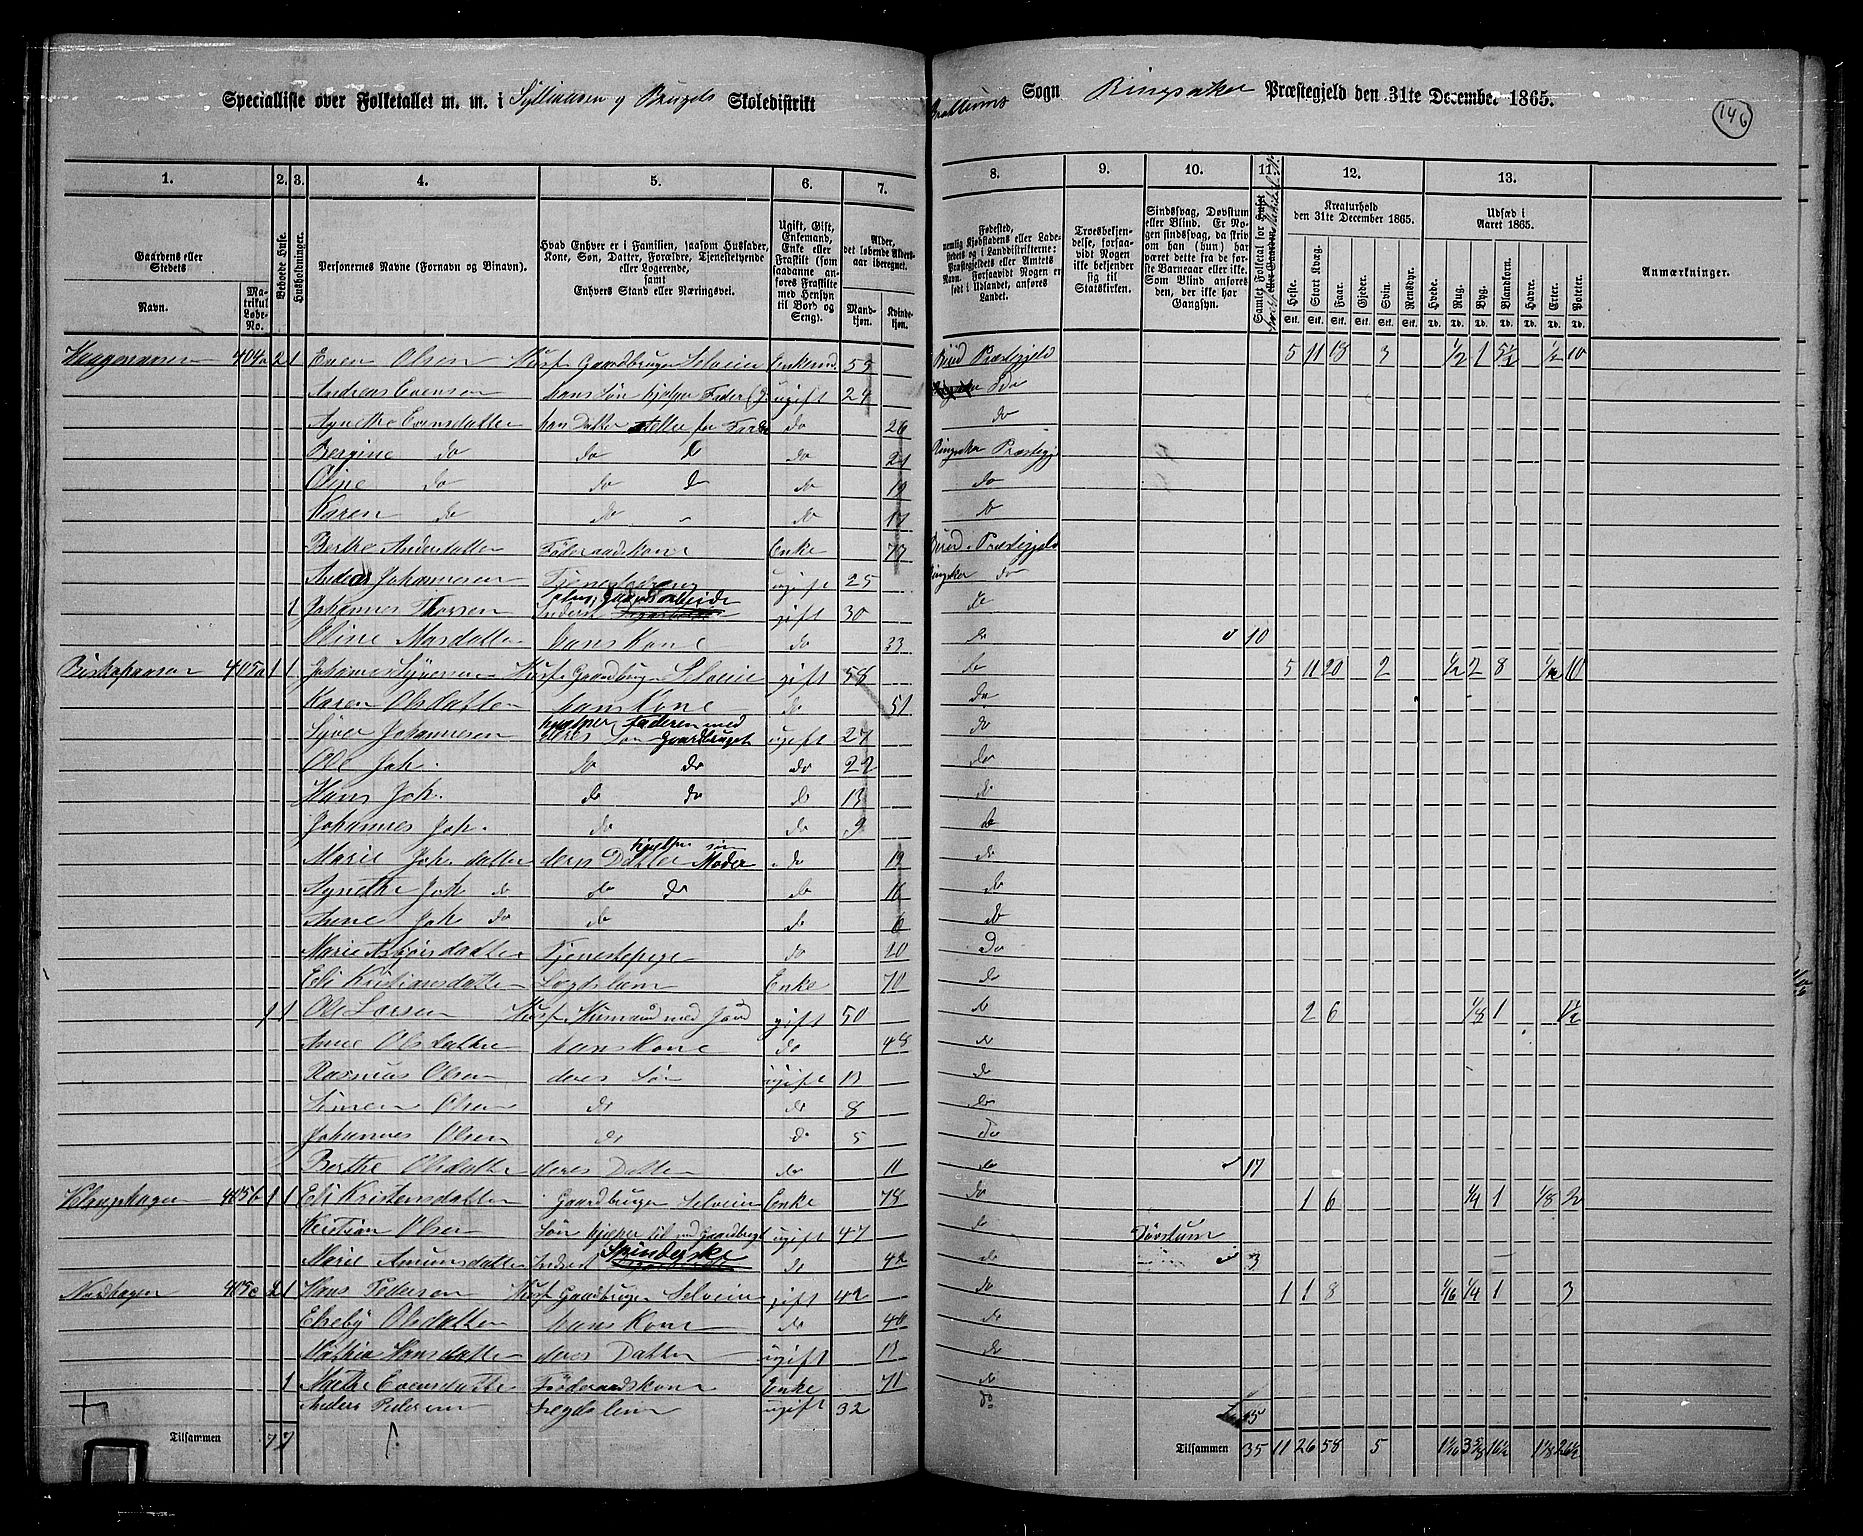 Specialliste over Folketallet m. m. i Skoledistrikt
Sogn Ringsaker Præstegjeld den 31te December 1865.
146
1. 2. 3. 4. 5. 6. 7. 8. 9. 10. 11. 12. 13.
Gaardens eller Stedets
Navn.
Matrikul Løbe-No.
Beboede Huse.
Husholdninger.
Personernes Navne (Fornavn og Binavn).
Hvad Enhver er i Familien, saasom Husfader, Kone, Søn, Datter, Forældre, Tjenestetyende eller Logerende, samt Enhvers Stand eller Næringsvei.
Ugift, Gift, Enkemand, Enke eller Fraskilt (som saadanne anføres Fraskilte med Hensyn til Bord og Seng).
Alder, det løbende Aldersaar iberegnet.
Mandkjøn.
Kvindekjøn.
Fødested, nemlig Kjøbstadens eller Ladestedets eller i Landdistrikterne: Præstegjeldets eller Amtets Navn. Forsaavidt Nogen er født i Udlandet, anføres Landet.
Troesbekjendelse, forsaavidt Nogen ikke bekjender sig til Statskirken.
Sindssvag, Døvstum eller Blind. Er Nogen sindssvag, da skrives om han (hun) har været dette fra de første Barneaar eller ikke. Som Blind anføres den, der ikke har Gangsyn.
Kreaturhold den 31te December 1865.
Heste. Stort Kvæg. Faar. Gjeder. Svin. Rensdyr.
Udsæd i Aaret 1865.
Hvede. Rug. Byg. Blandkorn. Havre. Erter. Poteter.
Anmærkninger.
404a 2 1 Even Olsen Husf. Gaardbruger Selveier Enkemd. 55 Biird Præstegjeld 5 11 18 3 1/2 1 5 1/2 1/2 10
Andreas Evensen hans Søn hjælper Fader ugift 24 Do
Agnethe Evensdatter hans Datter do 26 do
Bergine do do do do 21 Ringsaker Præstegj
Oline do do do do 19 do
Karen do do do 17 do
Berthe Andersdatter Føderaadskone Enke 77 Biird Præstegjeld
Anders Johannesen Tjenestedreng ugift 25 Ringsaker do
1 Johannes Thorsen Inderst gift 30 do
Oline Marsdatter hans Kone do 33 do 10
405a 1 1 Husf. Gaardbruger Selveier gift 58 do 5 11 20 2 1/2 2 8 1/2 10
Karen Olsdatter hans Kone do 51 do
Syver Johannesen hjælper Faderen med Gaardbruget deres Søn ugift 27 do
Ole Joh. do do do 22 do
Hans Joh. do do do 13 do
Johannes Joh. do do 9 do
Marie Joh datter deres Datter hjælper sin Moder do 19 do
Agnethe Joh do do do do 16 do
Anne Joh do do do 6 do
Marie Tjenestepige do 20 Do
Eli Kristiansdatter Lægdslem Enke 70 do
1 1 Ole Larsen Husf. Husmand med Jord gift 50 do 2 6 1/8 1 1 1/2
Anne Olsdatter hans Kone do 48 do
Rasmus Olsen deres Søn ugift 13 do
Simen Olsen do do 8 do
Johannes Olsen do do 5 Do
Berthe Olsdatter deres Datter do 11 do 17
Klomphagen 405b 1 1 Eli Kristensdatter Gaardbruger Selveier Enke 78 do 1 6 1/4 1 1/8 2
Kristian Olsen Søn hjælper til med Gaardbruget ugift 47 do Døvstum
Marie Amunsdatter Inderst Spinderske do 42 do 3
Nordhagen 405c 2 1 Hans Pedersen Husf Gaardbruger Selveier gift 42 do 1 1 8 1/16 1/4 1 3
Olsdatter hans Kone do 40 do
Mathia Hansdatter deres Datter ugift 13 do
1 Marthe Evensdatter Føderaadskone Enke 71 do
Anders Pedersen Lægdslem ugift 32 do 5
Tilsammen 7 7
Tilsammen 35 11 26 58 5